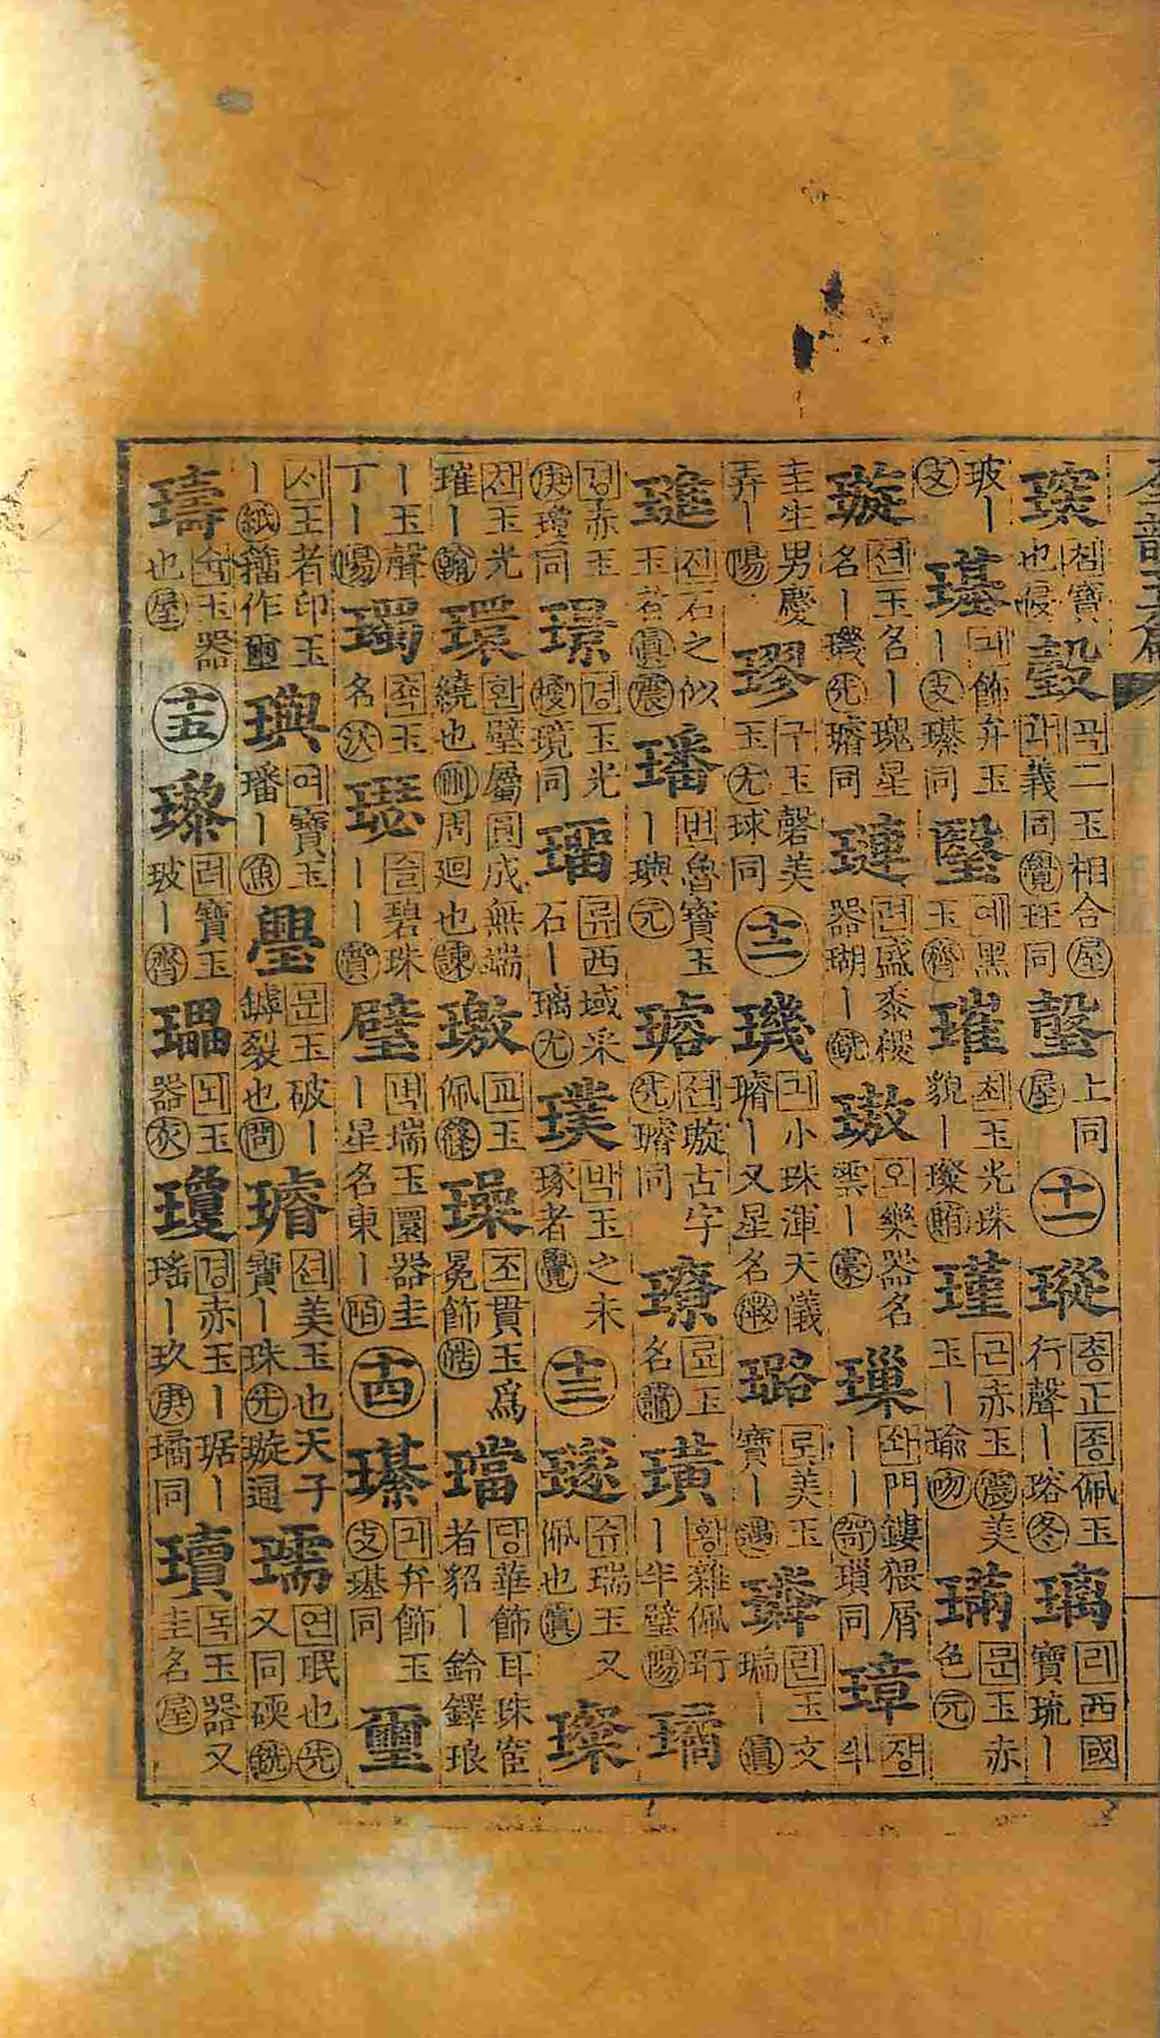 琛침寶也侵瑴곡二玉相合屋각義同覺珏同㲄上同屋十一瑽죵正종佩玉行聲丨瑢冬璃리西國寶琉丨
玻丨支璂긔飾弁玉丨支瓂同瑿예黑玉齊璀최玉光珠貌丨璨賄瑾근赤玉震美玉丨瑜吻璊문玉赤色元
璇션玉名丨瑰星名丨璣先璿同璉련盛黍稷器瑚丨銑璈오樂器名雲丨豪璅솨門鏤猥屑丨丨哿瑣同璋쟝半
圭生男慶弄丨陽璆구玉磬美玉尤球同十二璣긔小珠渾天儀璿丨又星名微璐로美玉寶丨遇璘린玉文瑞丨眞
璡진石之似玉者眞震璠번魯寶玉丨璵元璿션璇古字先璿同璙료玉名蕭璜황雜佩珩丨半璧陽璚
경赤玉庚瓊同璟경玉光梗璄同瑠류西域采石丨璃尤璞박玉之未琢者覺十三璲슈瑞玉又佩也寘璨
찬玉光璀丨翰環환璧屬圓成無端繞也刪周廻也諫璬교玉佩篠璪조貫玉爲冕飾皓璫당華飾耳珠宦者貂丨鈴鐸琅
丨玉聲丁丨陽쵹玉名沃璱슬碧珠丨丨質璧벽瑞玉圜器圭丨星名東丨陌十四瓂긔弁飾玉支璂同璽
시王者印玉丨紙籒作壐璵여寶玉璠丨魚璺문玉破丨鏬裂也問璿션美玉也天子寶丨珠先璇通瓀연珉也先又同碝銑
璹슉玉器也屋十五瓈려寶玉玻丨齊瓃뢰玉器灰瓊경赤玉丨琚丨瑤丨玖庚璚同瓄독玉器又圭名屋